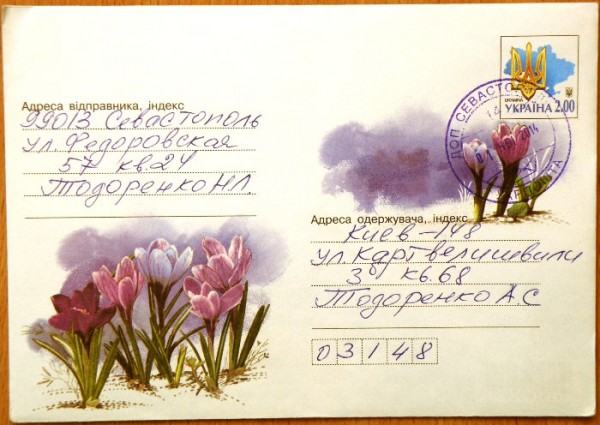 Адреса відправника, індекс
99013 Севастополь
ул. Федоровская
57 кв. 24
Тодоренко Н Л.
УКРАЇНА 2.00
ДОП СЕВАСТО
2014
Адреса одержувача, індекс
Киев - 148
ул. Картвелишвили
3б кв. 68
Тодоренко А С
03148